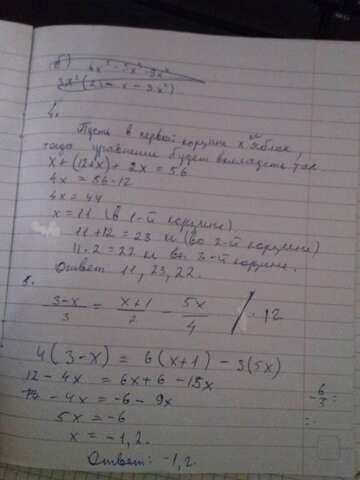 б) 6x³ - 3x² - 9x⁴
3x²(2 - x - 3x²)
4.
Пусть в первой корзине x яблок,
тогда уравнение будет выглядеть так
x + (12+x) + 2x = 56
4x = 56-12
4x = 44
x = 11 (в 1-й корзине)
11 + 12 = 23 к (во 2-й корзине)
11·2 = 22 к в 3-й корзине.
Ответ 11, 23, 22.
5.
3-x/3 = x+1/2 - 5x/4 / · 12
4(3-x) = 6(x+1) - 3(5x)
12 - 4x = 6x+6 - 15x
- 4x = -6 - 9x
5x = -6
x = -1,2.
Ответ: -1,2.
-6/5 =